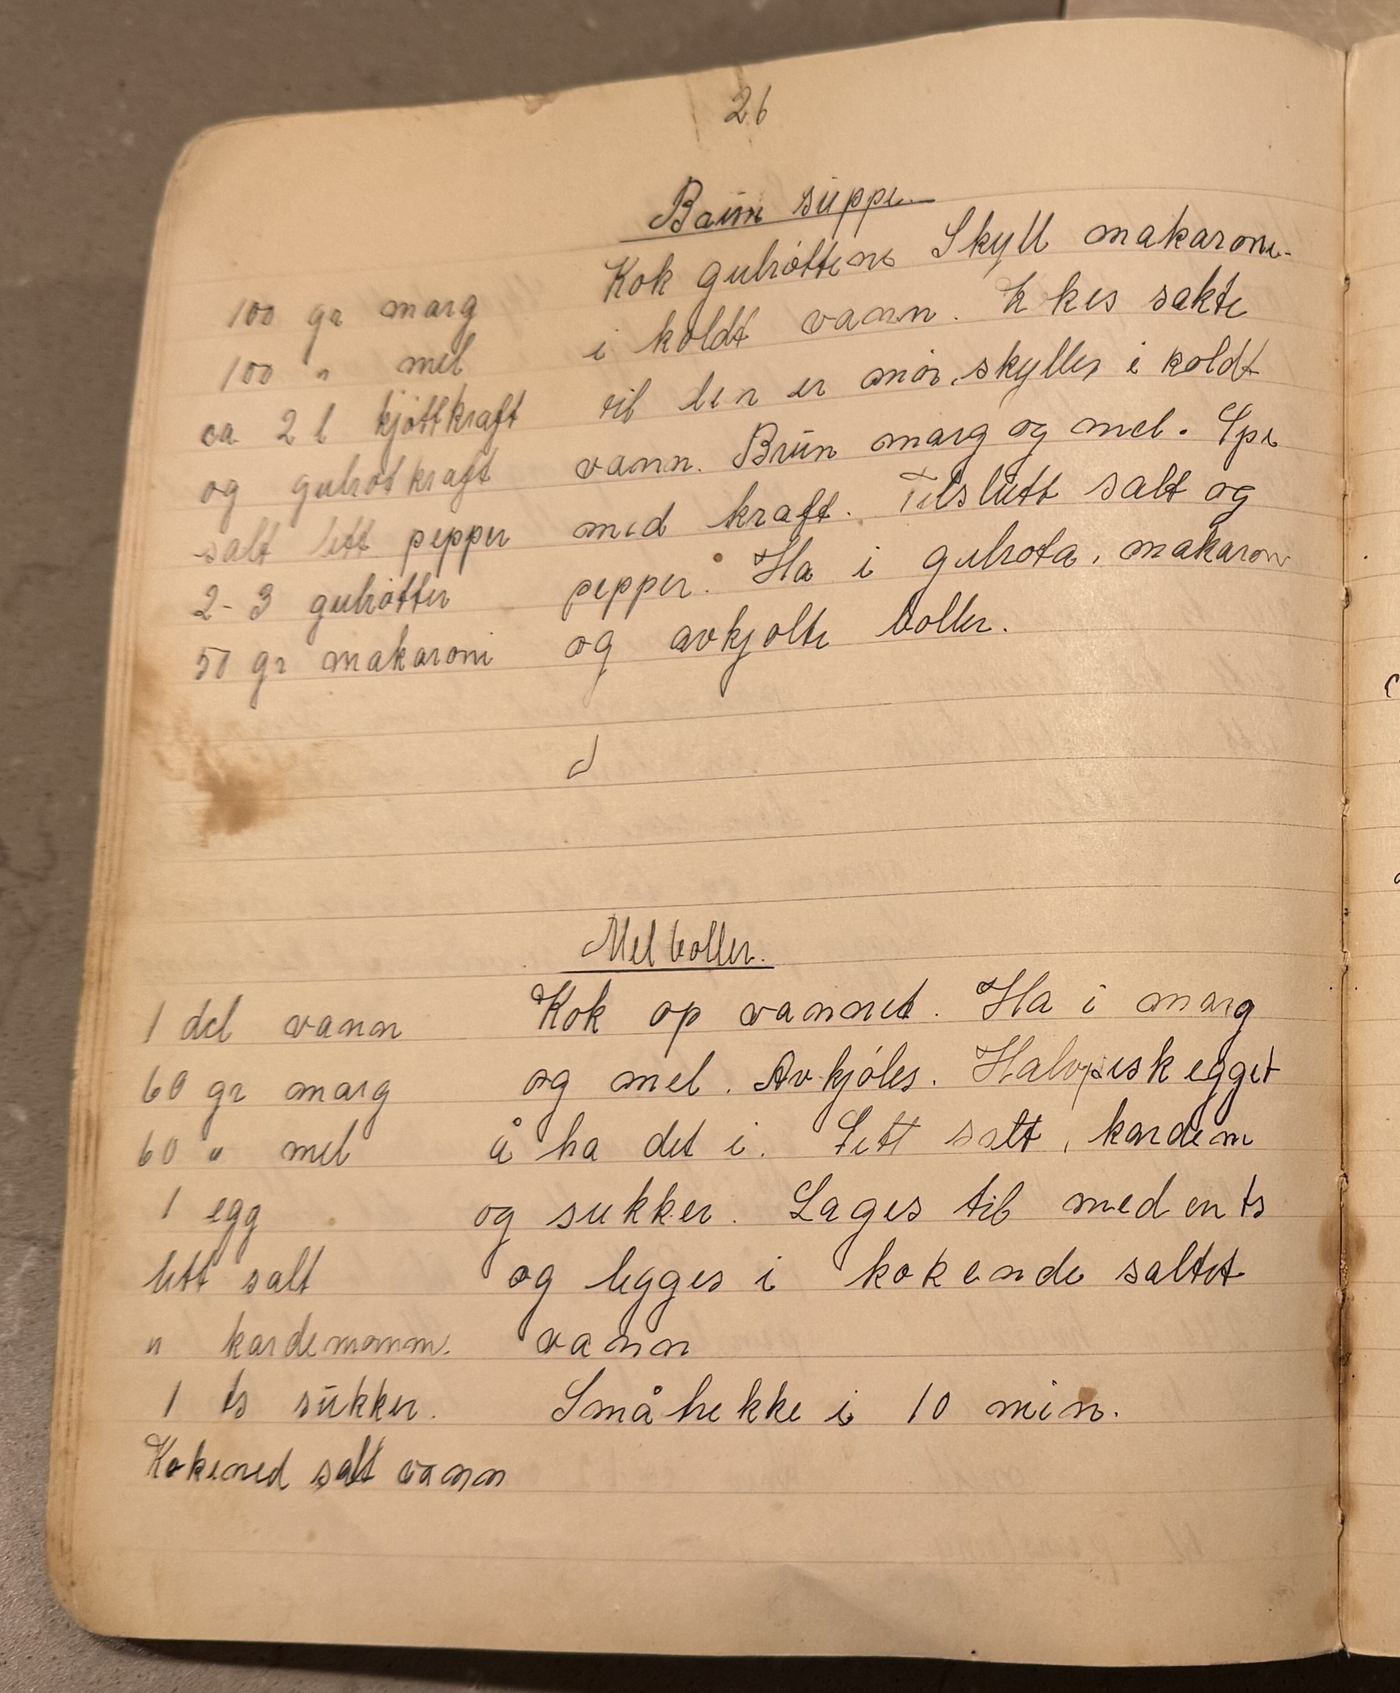 26
Brun suppe
100 gr marg
100 " mel
ca 2 l kjøttkraft
og gulrotkraft
salt litt pepper
2-3 gulrøtter
50 gr makaroni
Kok gulrøttene Skyll makaroni
i koldt vann. kokes sakte
til den er mør, skylles i koldt
vann. Brun marg og mel. Spe
med kraft. Tilslutt salt og
pepper. Ha i gulrota, makaron
og avkjølte boller.
Mel boller.
1 del vann
60 gr marg
60 " mel
1 egg
litt salt
" kardemomm.
1 ts sukker.
Kokened salt vann
Kok op vannet. Ha i marg
og mel. Avkjøles. Halvpisk egget
å ha det i. Litt salt, kardem
og sukker. Lages til med en ts
og legges i kokende saltet
vann
Småtrekke i 10 min.